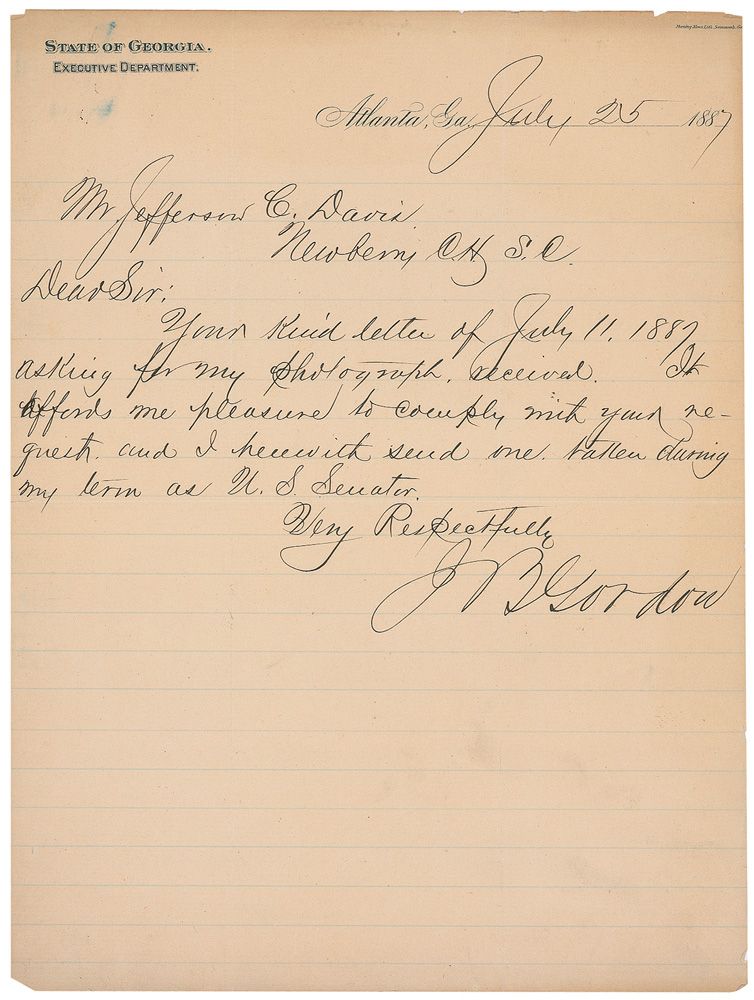 Morning News Lith. Savannah, Ga
STATE OF GEORGIA.
EXECUTIVE DEPARTMENT.
Atlanta, Ga. July 25 1887
Mr Jefferson C. Davis
Newberry C H S. C.
Dear Sir:
Your kind letter of July 11, 1887
asking for my photograph, received. It
affords me pleasure to comply with your re-
quest, and I herewith send one, taken during
my term as U. S. Senator.
Very Respectfully
J B Gordon